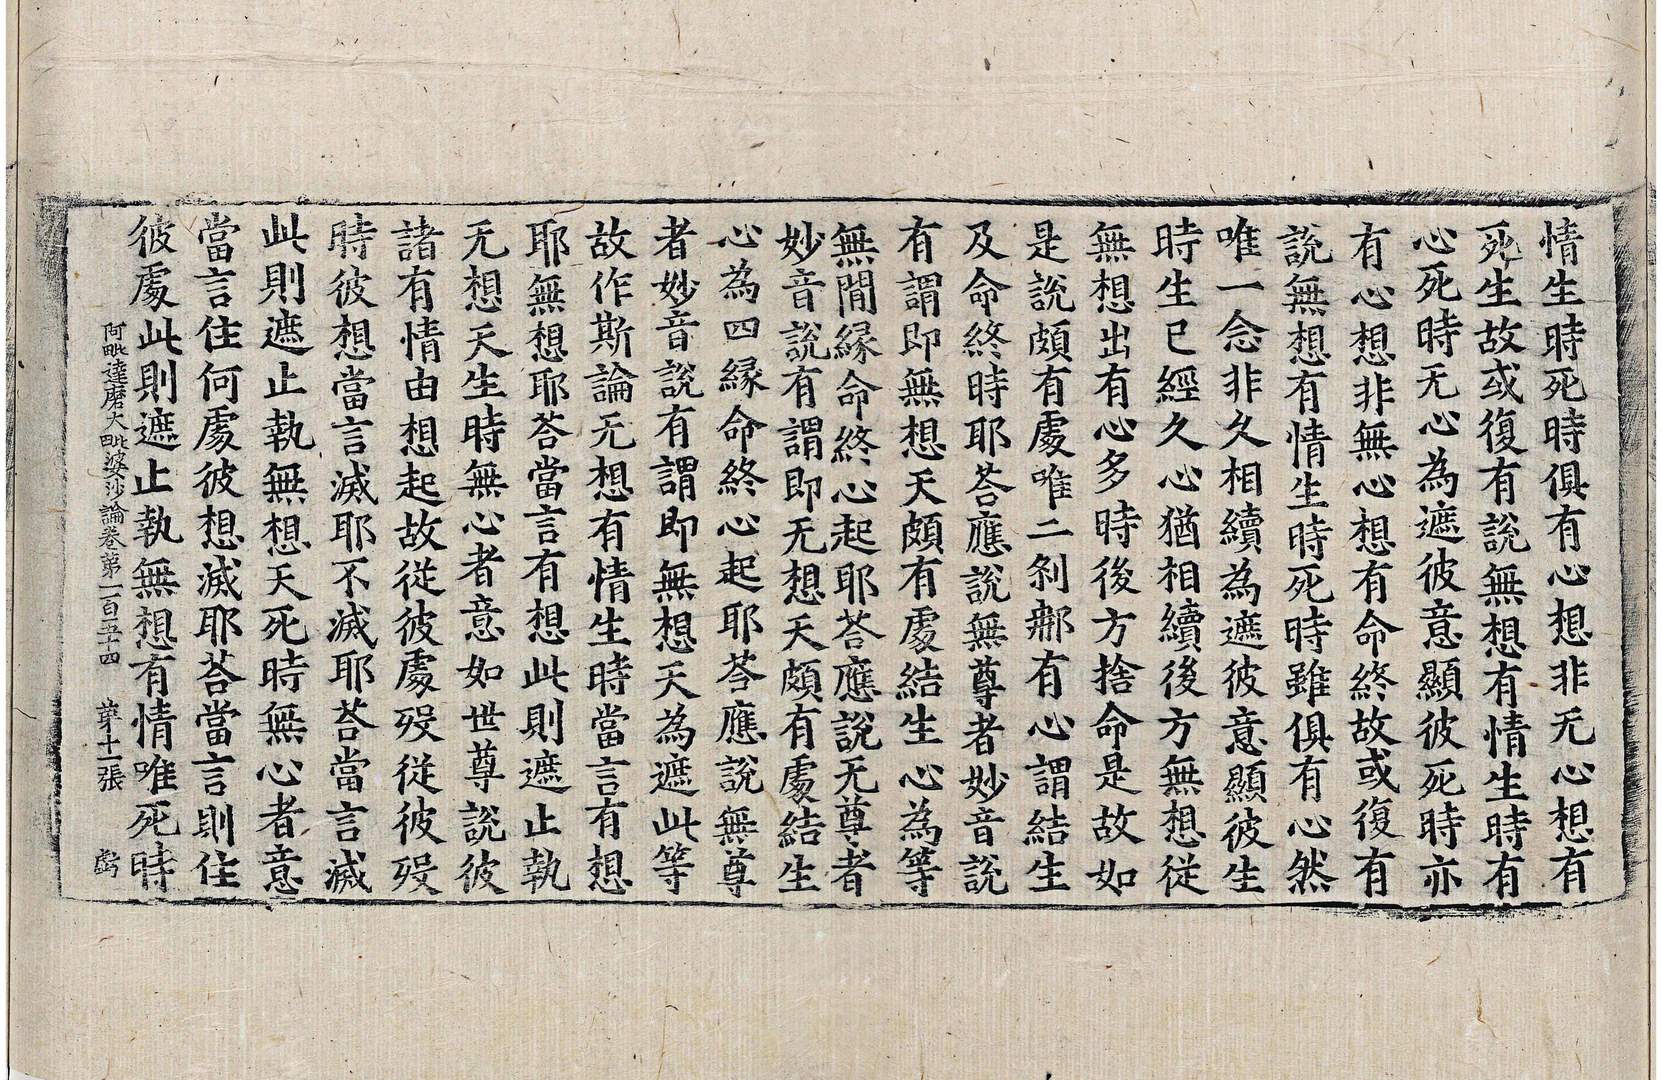 情生時死時俱有心想非无心想有
死生故或復有說無想有情生時有
心死時无心為遮彼意顯彼死時亦
有心想非無心想有命終故或復有
說無想有情生時死時雖俱有心然
唯一念非久相續為遮彼意顯彼生
時生已經久心猶相續後方無想從
無想出有心多時後方捨命是故如
是說頗有處唯二刹那有心謂結生
及命終時耶荅應說無尊者妙音說
有謂即無想天頗有處結生心為等
無間緣命終心起耶荅應說无尊者
妙音說有謂即无想天頗有處結生
心為四緣命終心起耶荅應說無尊
者妙音說有謂即無想天為遮此等
故作斯論无想有情生時當言有想
耶無想耶荅當言有想此則遮止執
无想天生時無心者意如世尊說彼
諸有情由想起故從彼處歿從彼歿
時彼想當言滅耶不滅耶荅當言滅
此則遮止執無想天死時無心者意
當言住何處彼想滅耶荅當言則住
彼處此則遮止執無想有情唯死時
阿毗達磨大毗婆沙論卷第一百五十四 第十一張 虧